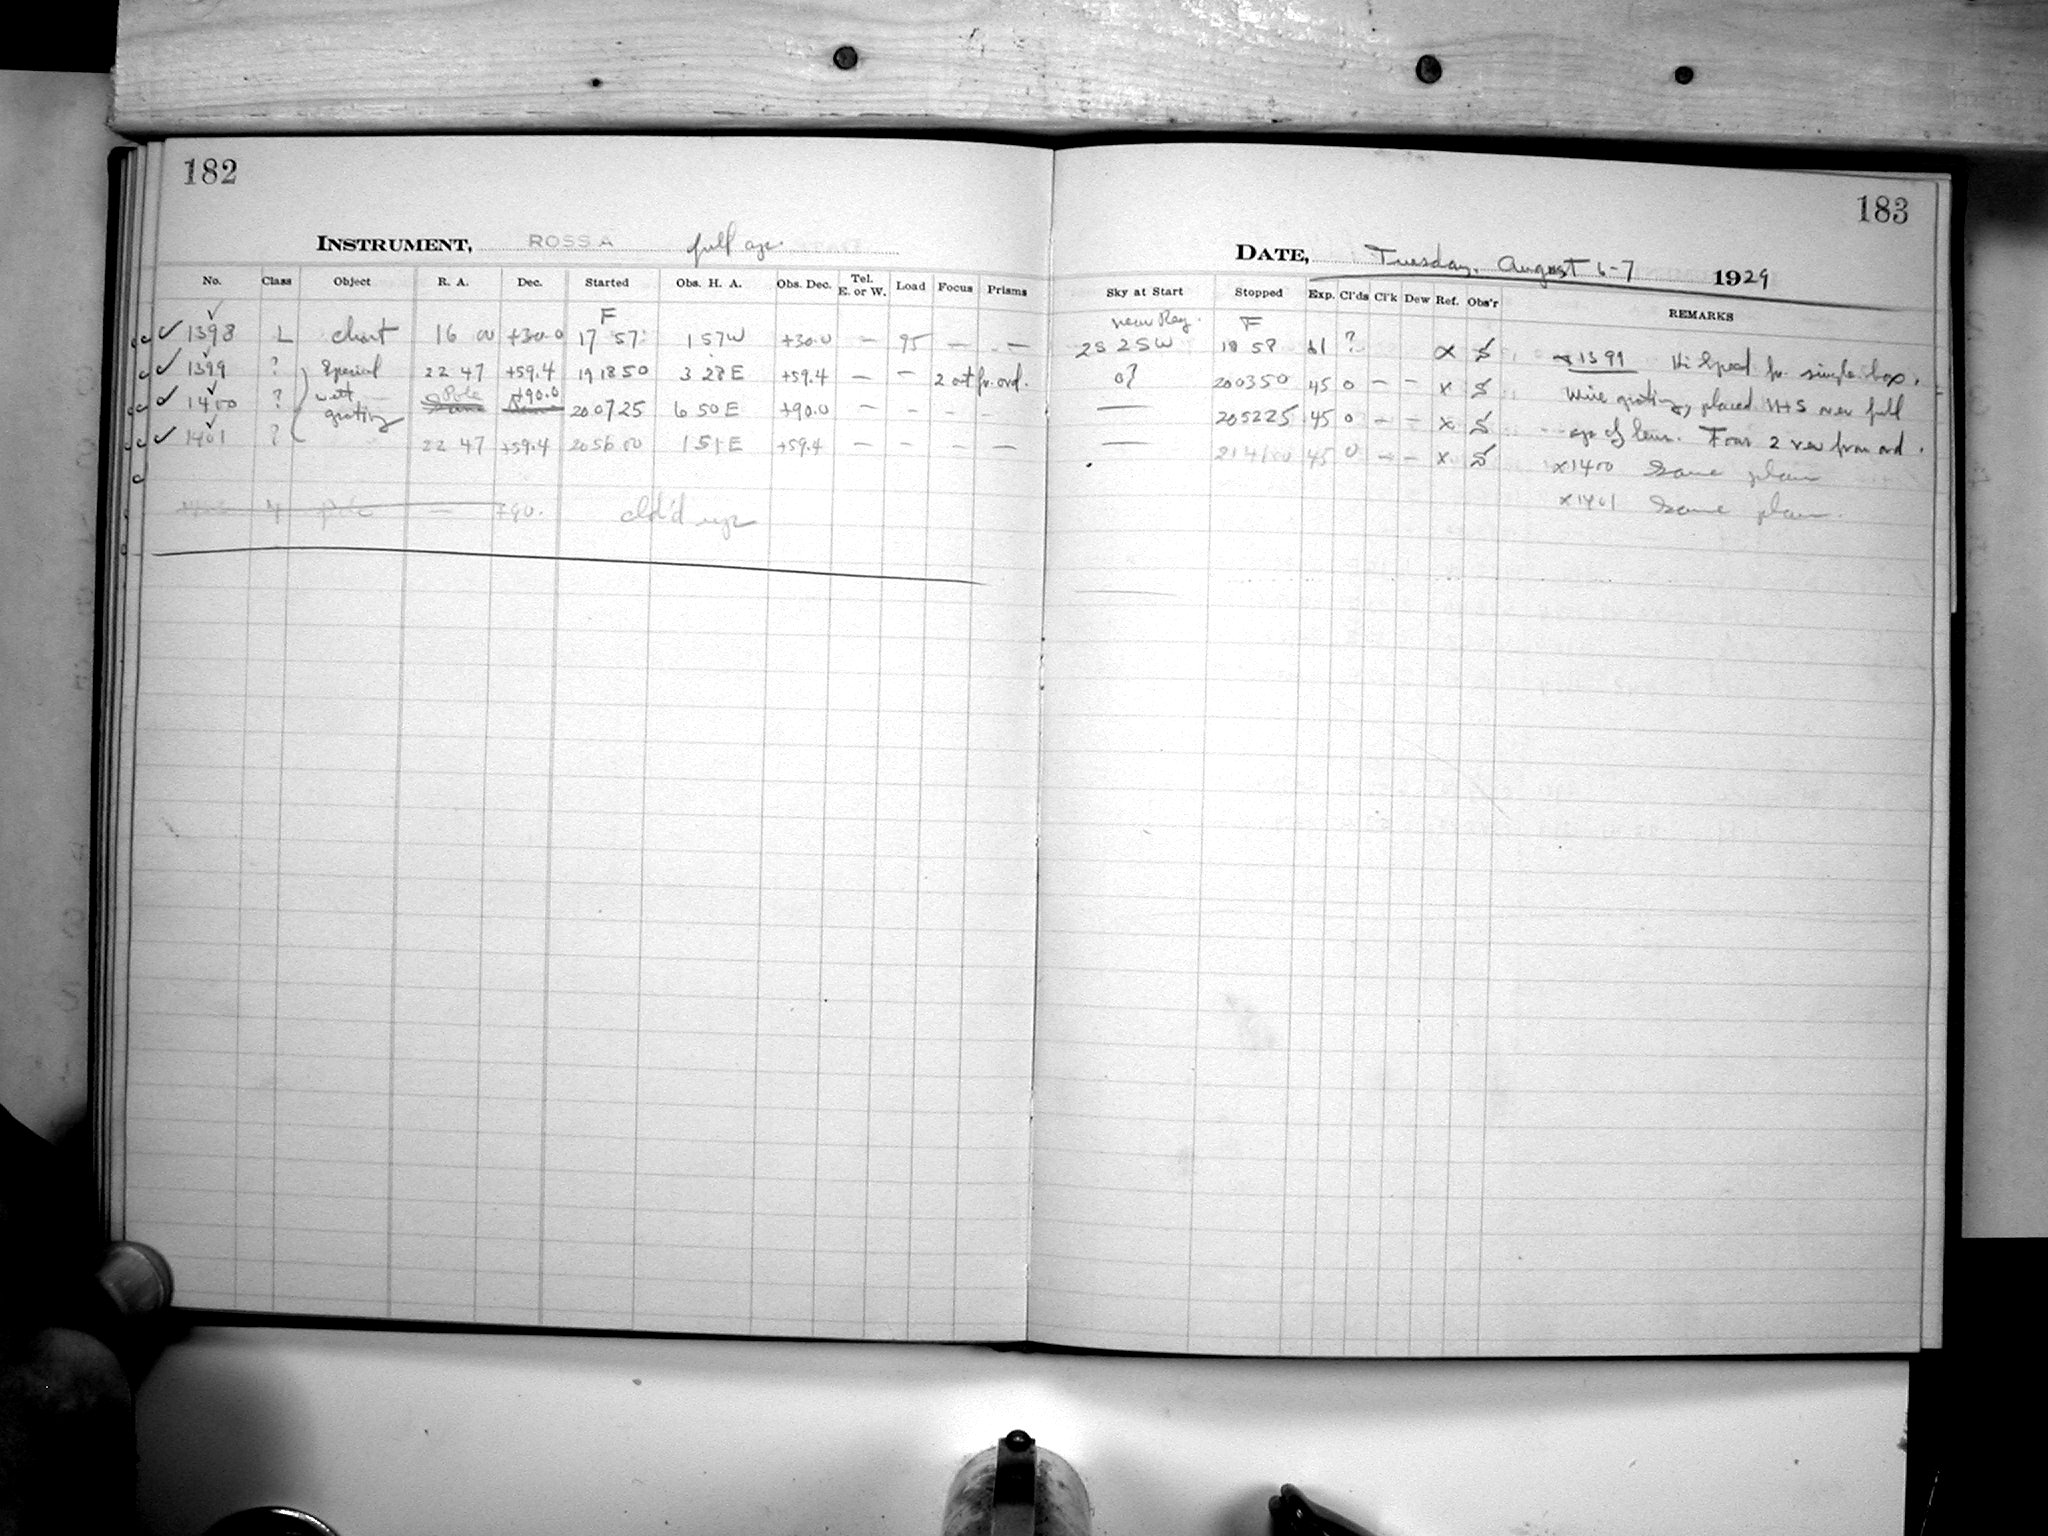 182
INSTRUMENT, ROSS A full ap.
No. Class Object R. A. Dec. Started Obs. H. A. Obs. Dec. Tel. E. or W. Load Focus Prisms
F
1398 L chart 16 00 +30.0 17 57 1 57 W +30.0 — 95 — —
1399 ? Special 22 47 +59.4 19 18 50 3 28 E +59.4 — — 2 out fr. ord.
1400 ? with Pole +90.0 20 07 25 6 50 E +90.0 — — — —
1401 ? grating 22 47 +59.4 20 56 00 1 51 E +59.4 — — — —
Pole — +90. cld'd up
183
DATE, Tuesday, August 6-7 1929
Sky at Start Stopped Exp. Cl'ds Cl'k Dew Ref. Obs'r REMARKS
near Reg. F
2S 2SW 18 58 61 ?
20 03 50 45 0 — — x
— 20 52 25 45 0 — — x
— 21 41 00 45 0 — — x
1399 Hi Speed fr. single box.
Wire grating, placed N+S over full
ap of lens. Focus 2 rev from ord.
x1400 Same plan
x1401 Same plan.